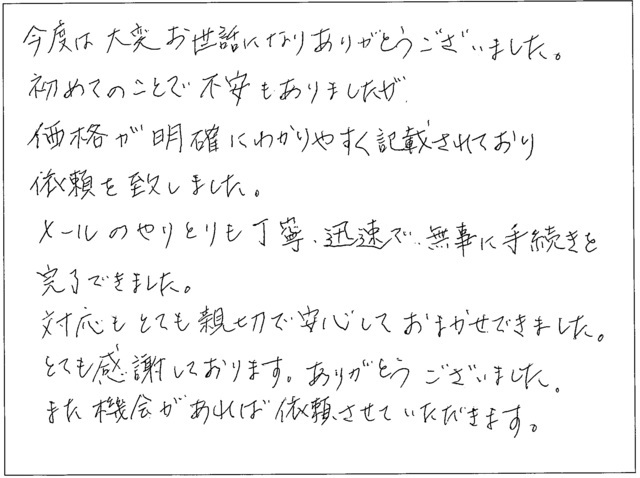 今度は大変お世話になりありがとうございました。
初めてのことで不安もありましたが
価格が明確にわかりやすく記載されており
依頼を致しました。
メールのやりとりも丁寧、迅速で、無事に手続きを
完了できました。
対応もとても親切で安心しておまかせできました。
とても感謝しております。ありがとうございました。
また機会があれば依頼させていただきます。